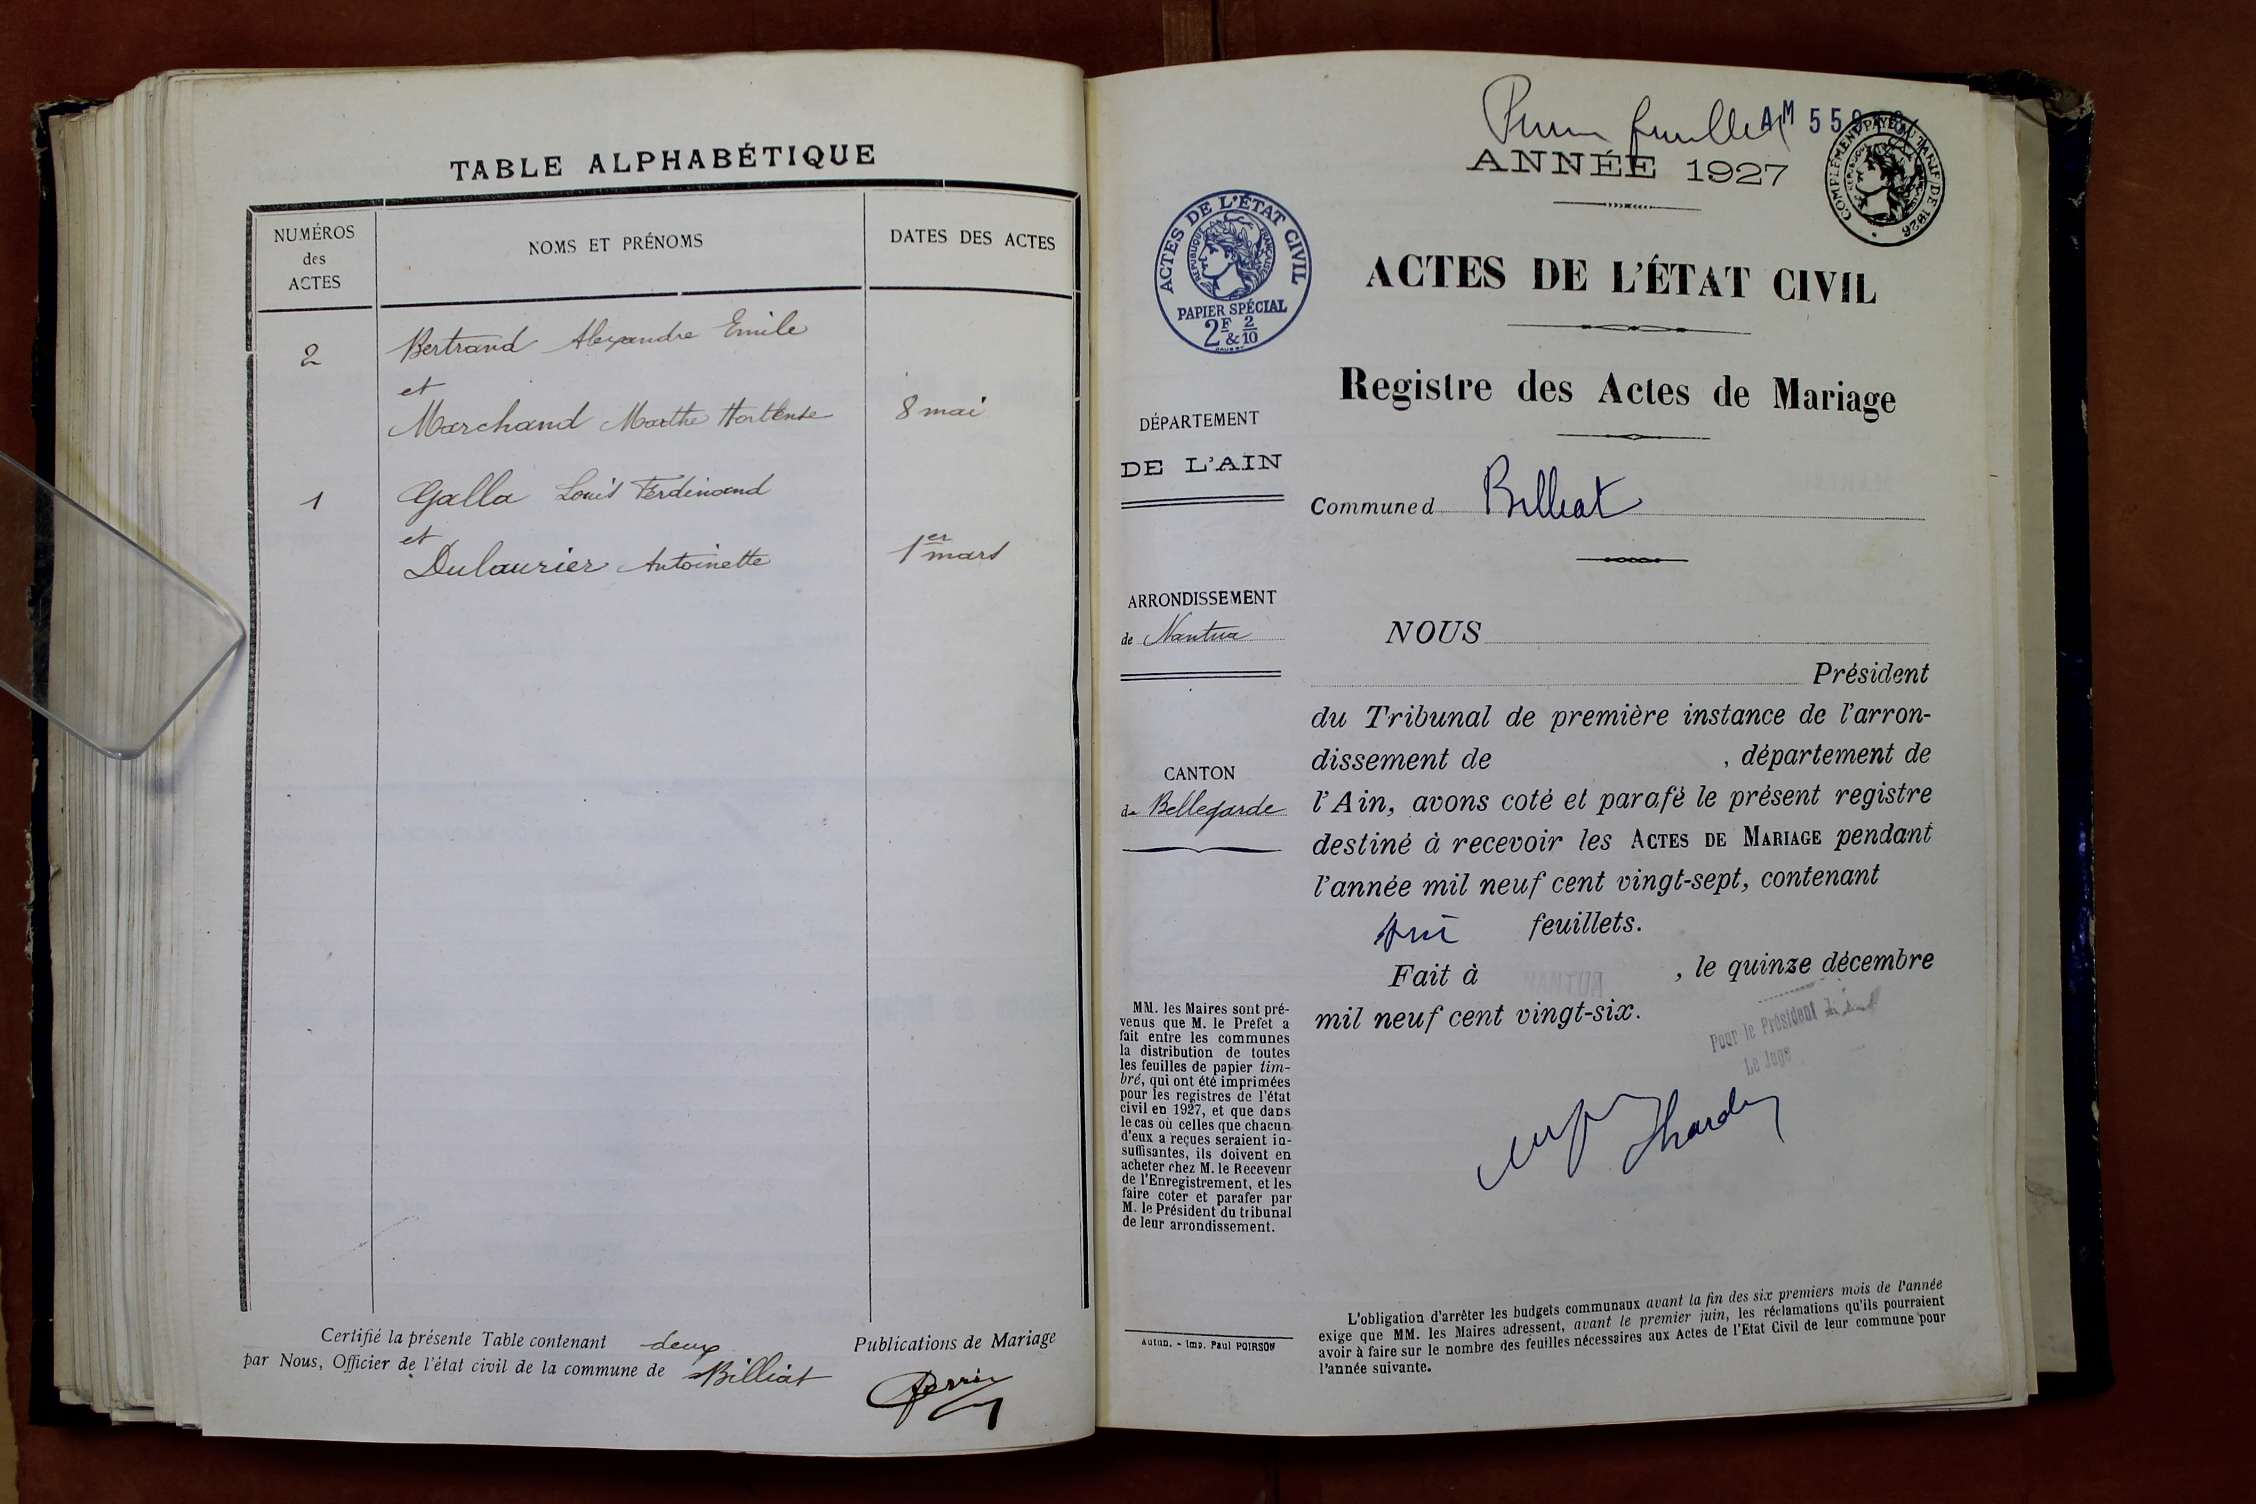 TABLE ALPHABÉTIQUE
NUMÉROS
des
ACTES
NOMS ET PRÉNOMS
DATES DES ACTES
2
Bertrand Alexandre Emile
et
Marchand Marthe Hortense
8 mai
1
Galla Louis Ferdinand
et
Dulaurier Antoinette
1er mars
Certifié la présente Table contenant deux Publications de Mariage
par Nous, Officier de l'état civil de la commune de Billiat
Perrin
feuillet
AM 55
ANNÉE 1927
COMPLÉMENT PAYÉ AU TARIF DE 1926
ACTES DE L'ÉTAT CIVIL
RÉPUBLIQUE FRANÇAISE
PAPIER SPÉCIAL
2F & 2/10
ACTES DE L'ÉTAT CIVIL
Registre des Actes de Mariage
DÉPARTEMENT
DE L'AIN
Commune d Billiat
ARRONDISSEMENT
de Nantua
CANTON
de Bellegarde
NOUS
Président
du Tribunal de première instance de l'arron-
dissement de , département de
l'Ain, avons coté et parafé le présent registre
destiné à recevoir les ACTES DE MARIAGE pendant
l'année mil neuf cent vingt-sept, contenant
feuillets.
Fait à NANTUA, le quinze décembre
mil neuf cent vingt-six.
Pour le Président
Le Juge
MM. les Maires sont pré-
venus que M. le Préfet a
fait entre les communes
la distribution de toutes
les feuilles de papier tim-
bré, qui ont été imprimées
pour les registres de l'état
civil en 1927, et que dans
le cas où celles que chacun
d'eux a reçues seraient in-
suffisantes, ils doivent en
acheter chez M. le Receveur
de l'Enregistrement, et les
faire coter et parafer par
M. le Président du tribunal
de leur arrondissement.
Autun. - Imp. Paul POIRSON
L'obligation d'arrêter les budgets communaux avant la fin des six premiers mois de l'année
exige que MM. les Maires adressent, avant le premier juin, les réclamations qu'ils pourraient
avoir à faire sur le nombre des feuilles nécessaires aux Actes de l'Etat Civil de leur commune pour
l'année suivante.